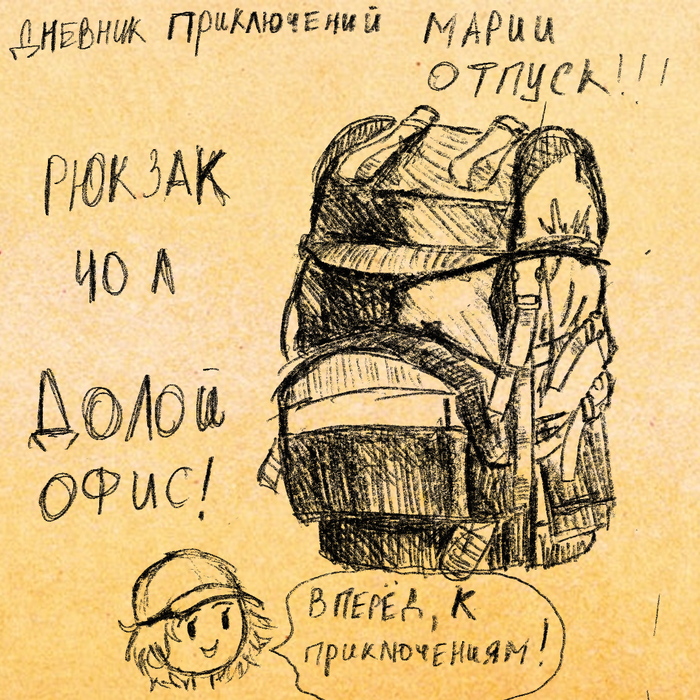 ДНЕВНИК ПРИКЛЮЧЕНИЙ МАРИИ
ОТПУСК!!!
РЮКЗАК
40 Л
ДОЛОЙ
ОФИС!
ВПЕРЁД, К
ПРИКЛЮЧЕНИЯМ!